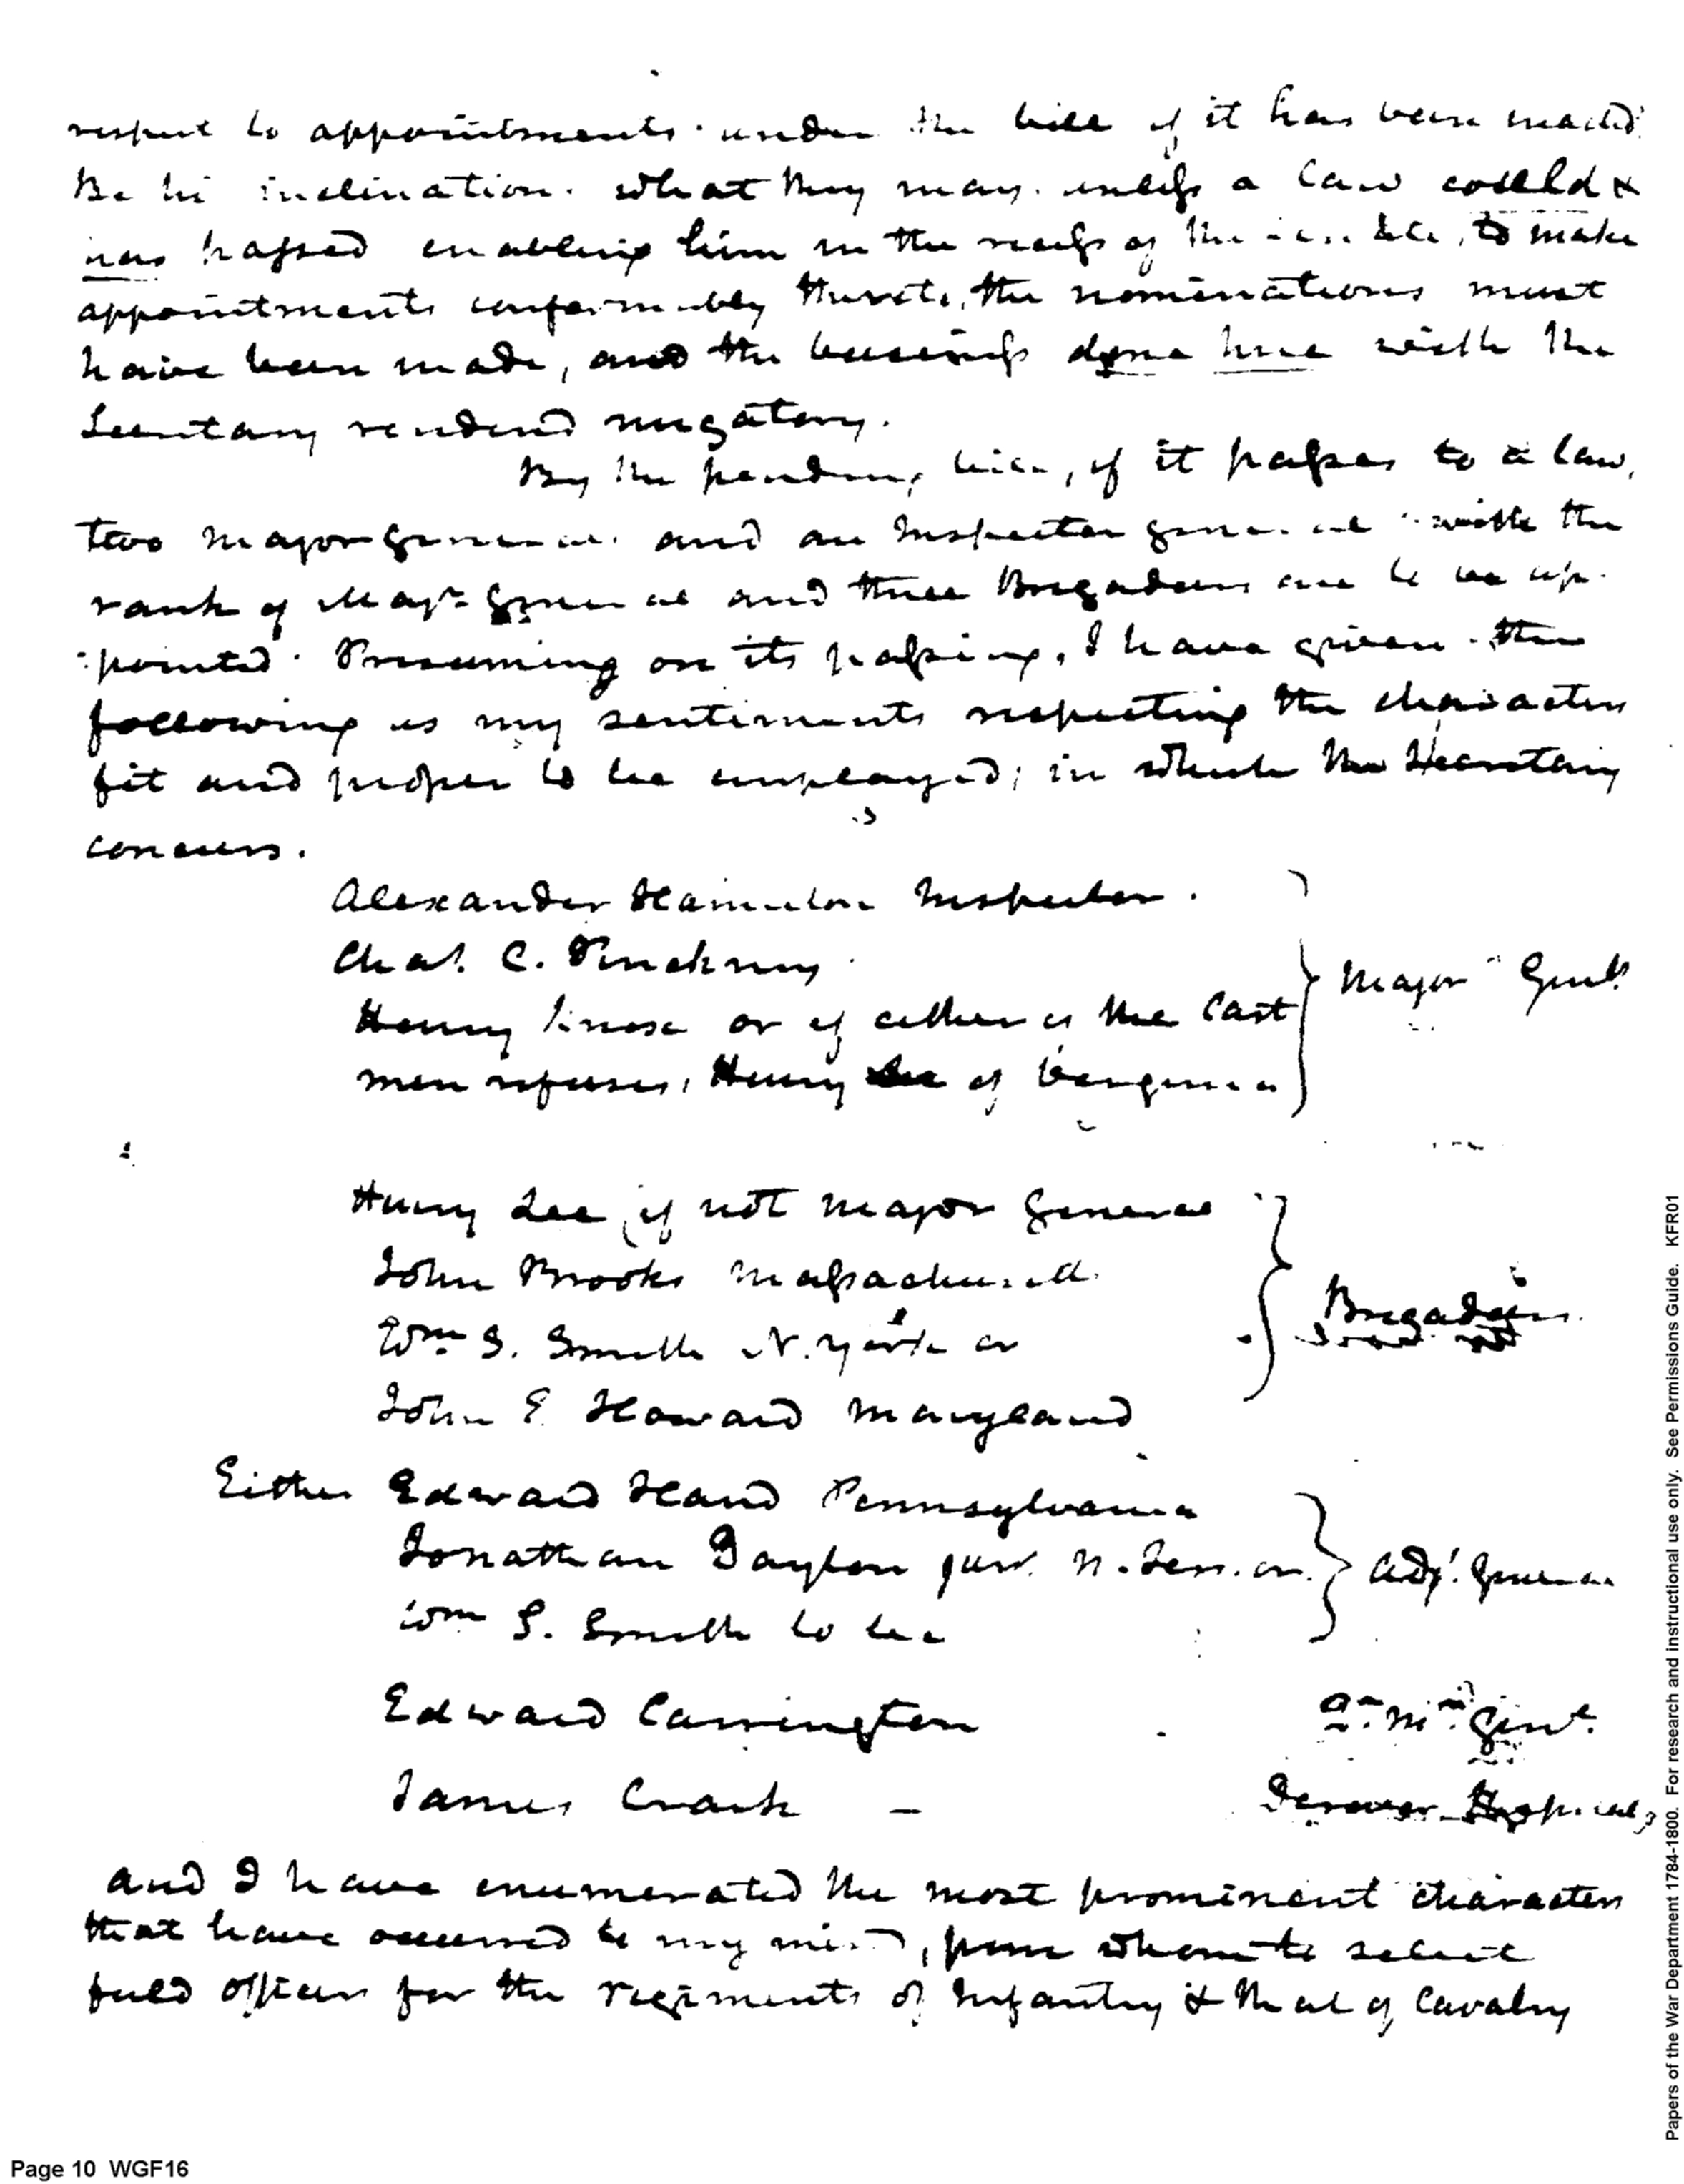 respect to appointments under the bill if it has been enacted.
Be his inclination what they may. unless a law could &
was passed enabling him in the recess of the Senate, to make
appointments conformably thereto, the nominations must
have been made, and the business done here with the
Secretary rendered nugatory.
By the pending bill, if it passes to a law,
two Major generals and an Inspector general with the
rank of Majr. General and three Brigadiers are to be ap
pointed. Presuming on its passing, I have given the
following as my sentiments respecting the characters
fit and proper to be employed; in which the Secretary
concurs.
Alexander Hamilton Inspector.
Chas. C. Pinckney
Henry Knox or if either of the last
men refuses, Henry Lee of Virginia
Major Genls
Henry Lee if not Major General
John Brooks Massachusetts
Wm. S. Smith N. York or
John E Howard Maryland
Brigadiers
Either Edward Hand Pennsylvania
Jonathan Dayton junr. N. Jersey or
Wm S. Smith to be
Adjt. General
Edward Carrington Qr. Mr. Genl.
James Craik — Hospital
and I have enumerated the most prominent characters
that have occurred to my mind, from whom to select
field officers for the regiments of Infantry & that of Cavalry
Papers of the War Department 1784-1800. For research and instructional use only. See Permissions Guide. KFR01
Page 10 WGF16